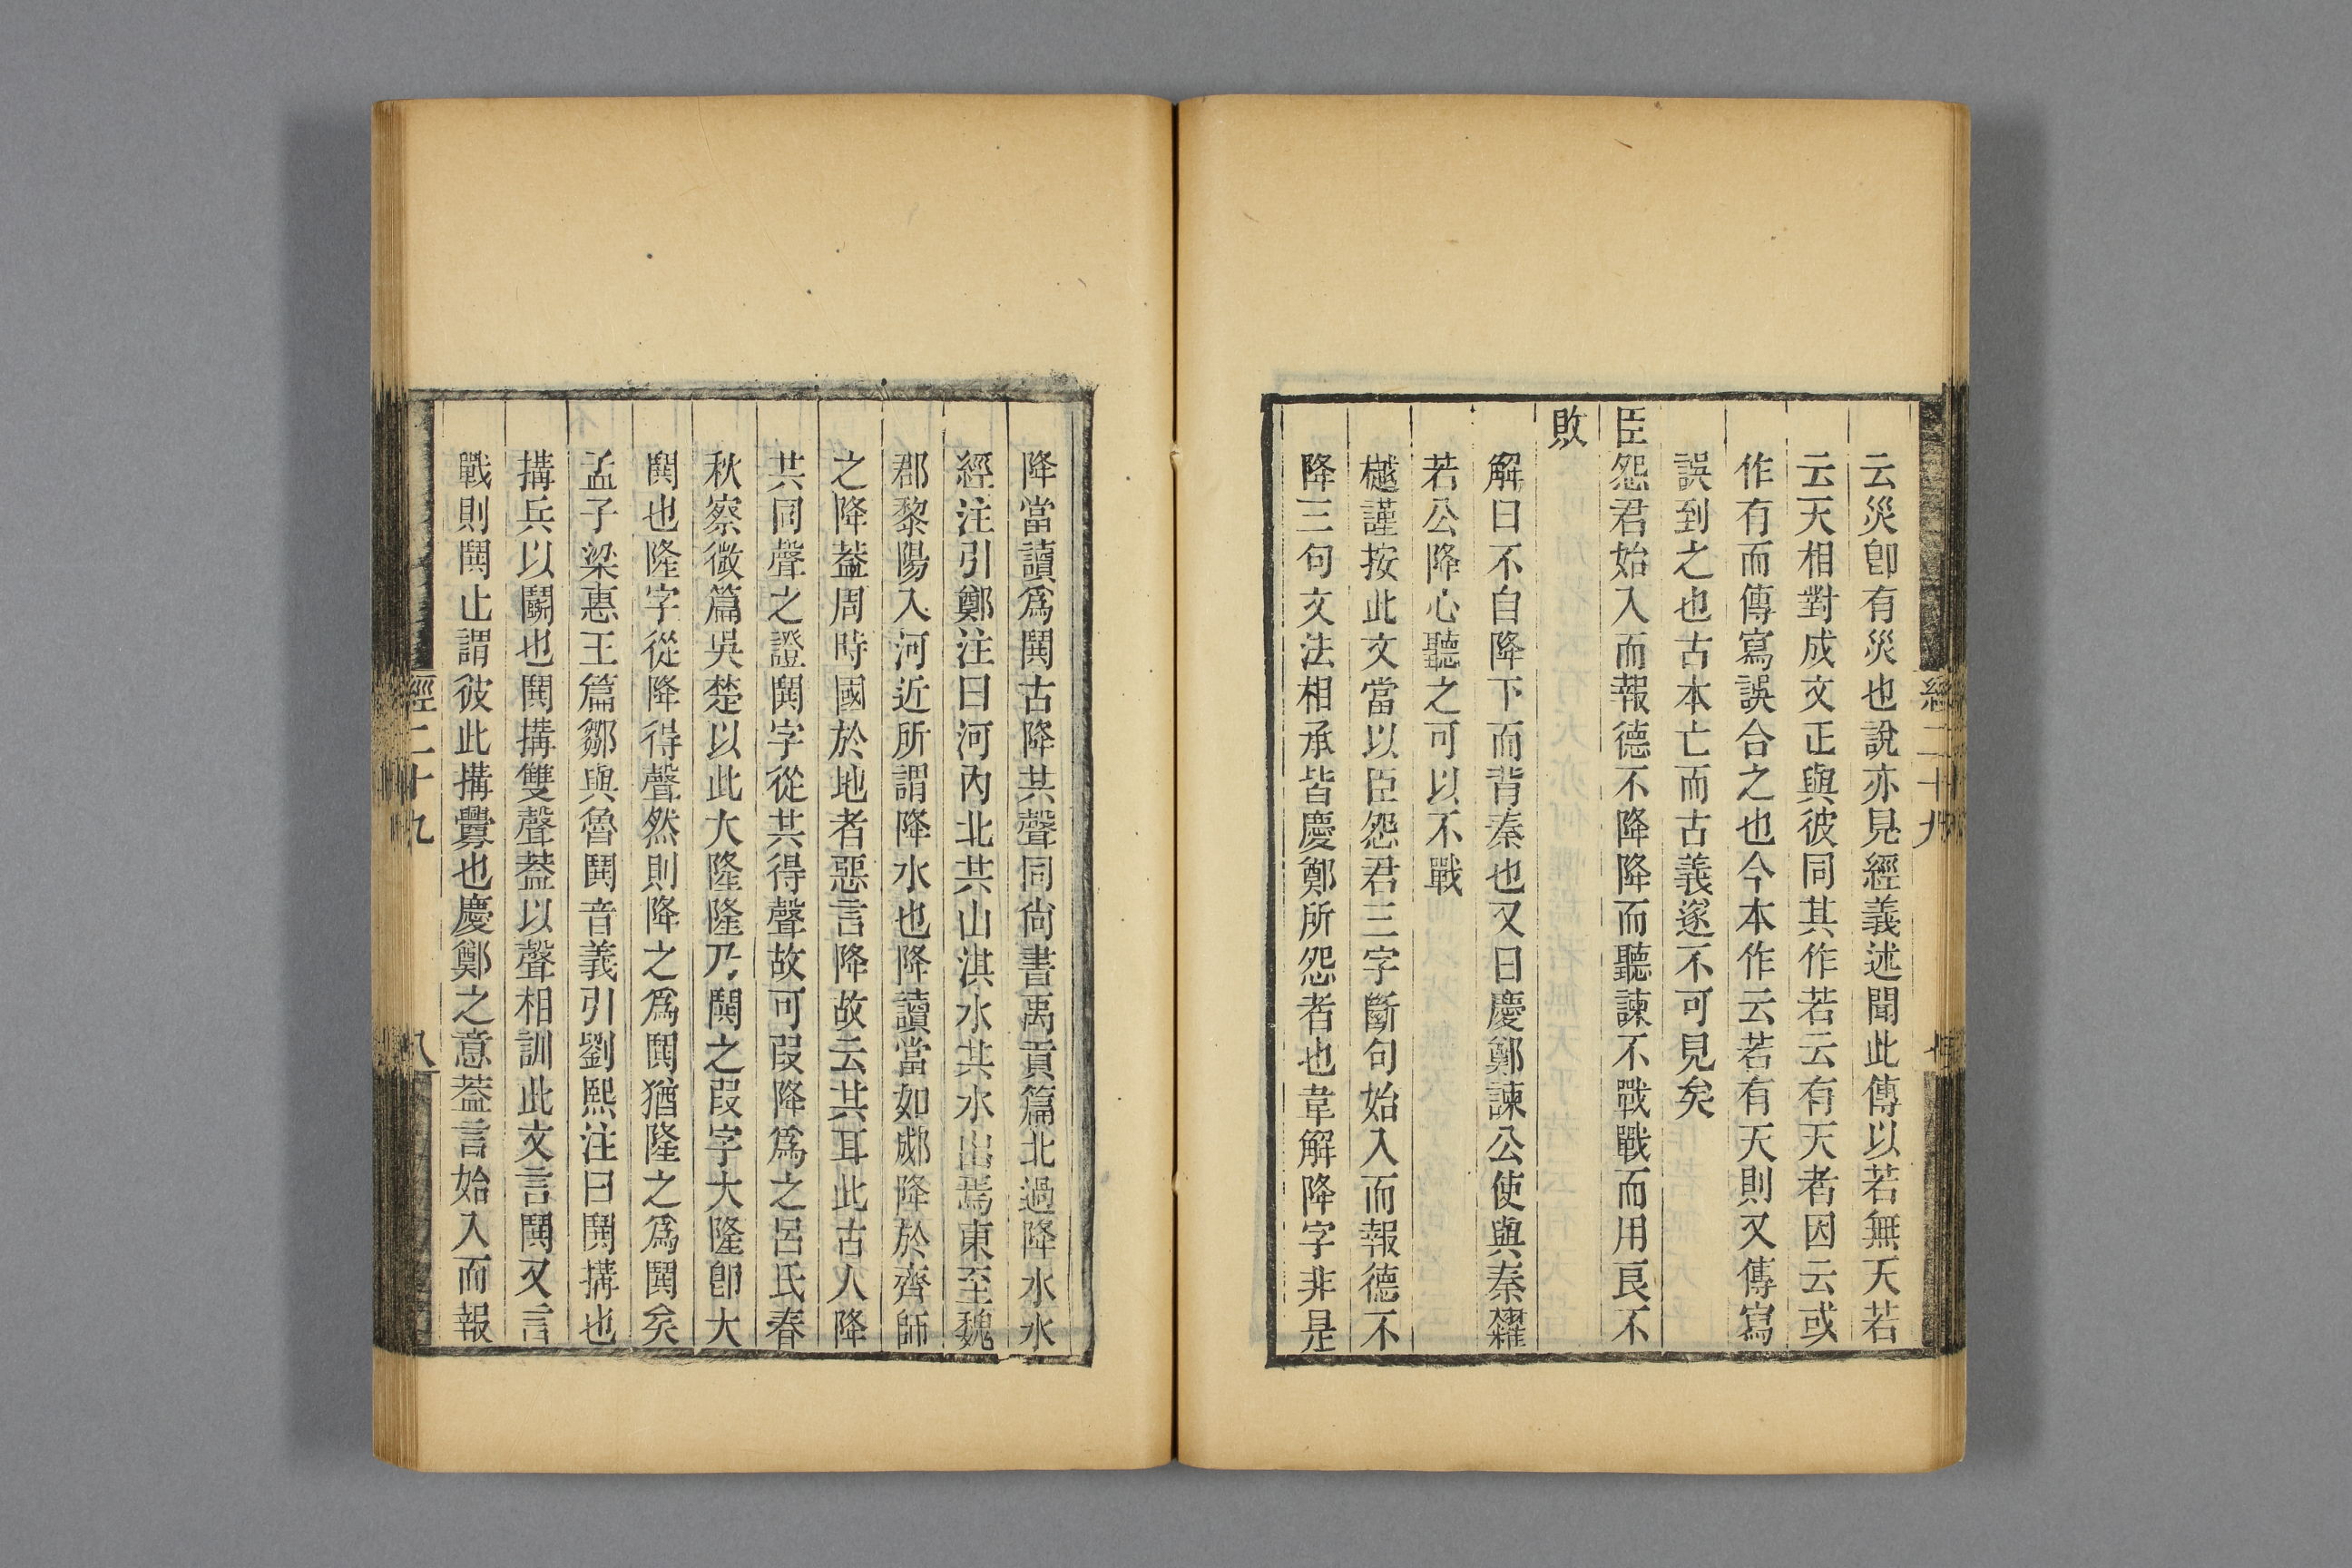 云災卽有災也說亦見經義述聞此傳以若無天若
云天相對成文正與彼同其作若云有天者因云或
作有而傳寫誤合之也今本作云若有天則又傳寫
誤到之也古本亡而古義遂不可見矣
臣怨君始入而報德不降降而聽諫不戰戰而用良不
敗
解曰不自降下而背秦也又曰慶鄭諫公使與秦糴
若公降心聽之可以不戰
樾謹按此文當以臣怨君三字斷句始入而報德不
降三句文法相承皆慶鄭所怨者也韋解降字非是
降當讀爲鬨古降共聲同尙書禹貢篇北過降水水
經注引鄭注曰河內北共山淇水共水出焉東至魏
郡黎陽入河近所謂降水也降讀當如郕降於齊師
之降葢周時國於地者惡言降故云共耳此古人降
共同聲之證鬨字從共得聲故可叚降爲之呂氏春
秋察微篇吳楚以此大隆隆乃鬨之叚字大隆卽大
鬨也隆字從降得聲然則降之爲鬨猶隆之爲鬨矣
孟子梁惠王篇鄒與魯鬨音義引劉熙注曰鬨搆也
搆兵以鬭也鬨搆雙聲葢以聲相訓此文言鬨又言
戰則鬨止謂彼此搆釁也慶鄭之意葢言始入而報
經二十九
八